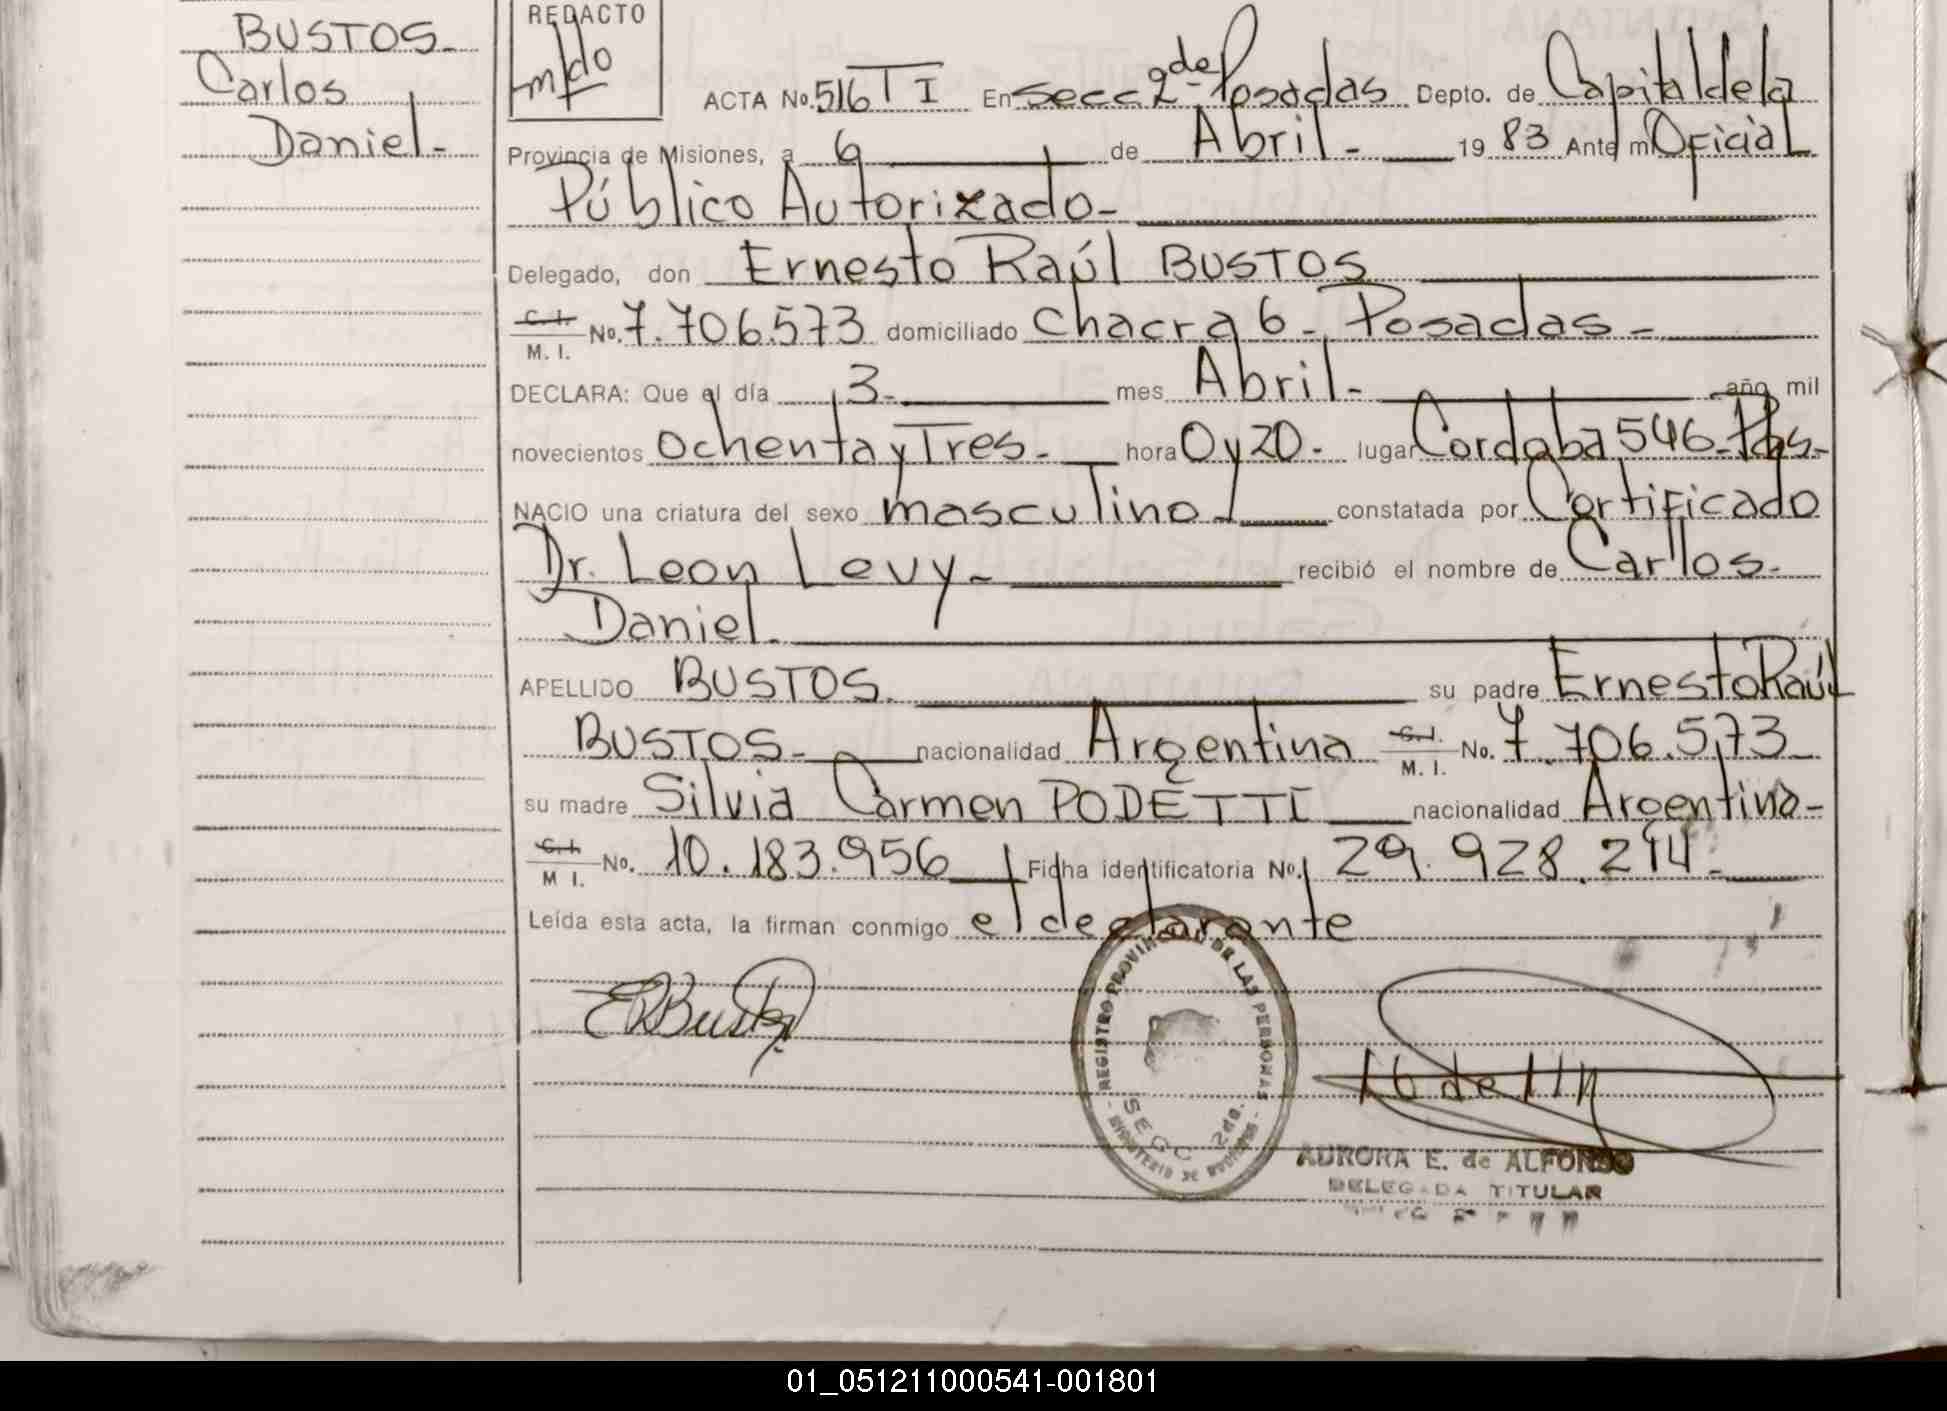 BUSTOS-
Carlos
Daniel-
REDACTO
ACTA No. 516 TI En Secc 2da Posadas Depto. de Capital de la
Provincia de Misiones, a 6 de Abril- 1983 Ante mi Oficial
Público Autorizado-
Delegado, don Ernesto Raúl BUSTOS
C.I. M. I. No. 7.706.573 domiciliado Chacra 6- Posadas-
DECLARA: Que el día 3- mes Abril- año mil
novecientos ochenta y Tres- hora 0 y 20- lugar Cordoba 546-Pdas-
NACIO una criatura del sexo masculino- constatada por Certificado
Dr. Leon Levy- recibió el nombre de Carlos-
Daniel-
APELLIDO BUSTOS su padre Ernesto Raúl
BUSTOS- nacionalidad Argentina C.I. M. I. No. 7.706.573-
su madre Silvia Carmen PODETTI nacionalidad Argentina-
C.I. M I. No. 10.183.956 Ficha identificatoria No. 29.928.214-
Leída esta acta, la firman conmigo el declarante
ERBustos
REGISTRO PROVINCIAL DE LAS PERSONAS
SECC 2da.
MINISTERIO DE
AURORA E. de ALFONSO
DELEGADA TITULAR
01_051211000541-001801